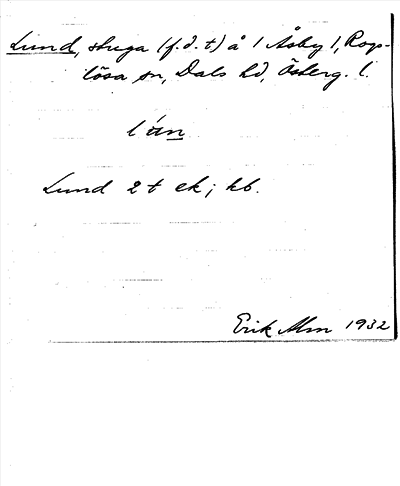 Lund, stuga (f.d. t) å 1 Åsby 1, Rogs-
lösa sn, Dals hd, Österg. l.
Lund 2 t ek; kb.
Erik Alm 1932